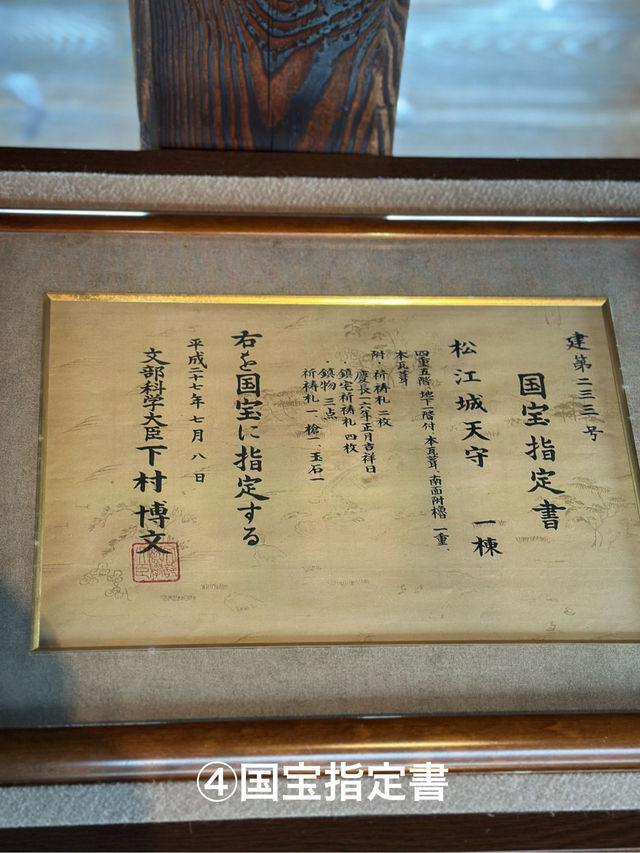 建第二三三号
国宝指定書
松江城天守 一棟
四重五階 地下一階付 本瓦葺、南面附櫓 一重、
本瓦葺
附・祈祷札 二枚
慶長一六年正月吉祥日
鎮宅祈祷札 四枚
・鎮物 三点
祈祷札一、槍一、玉石一
右を国宝に指定する
平成二十七年七月八日
文部科学大臣 下村博文
④国宝指定書